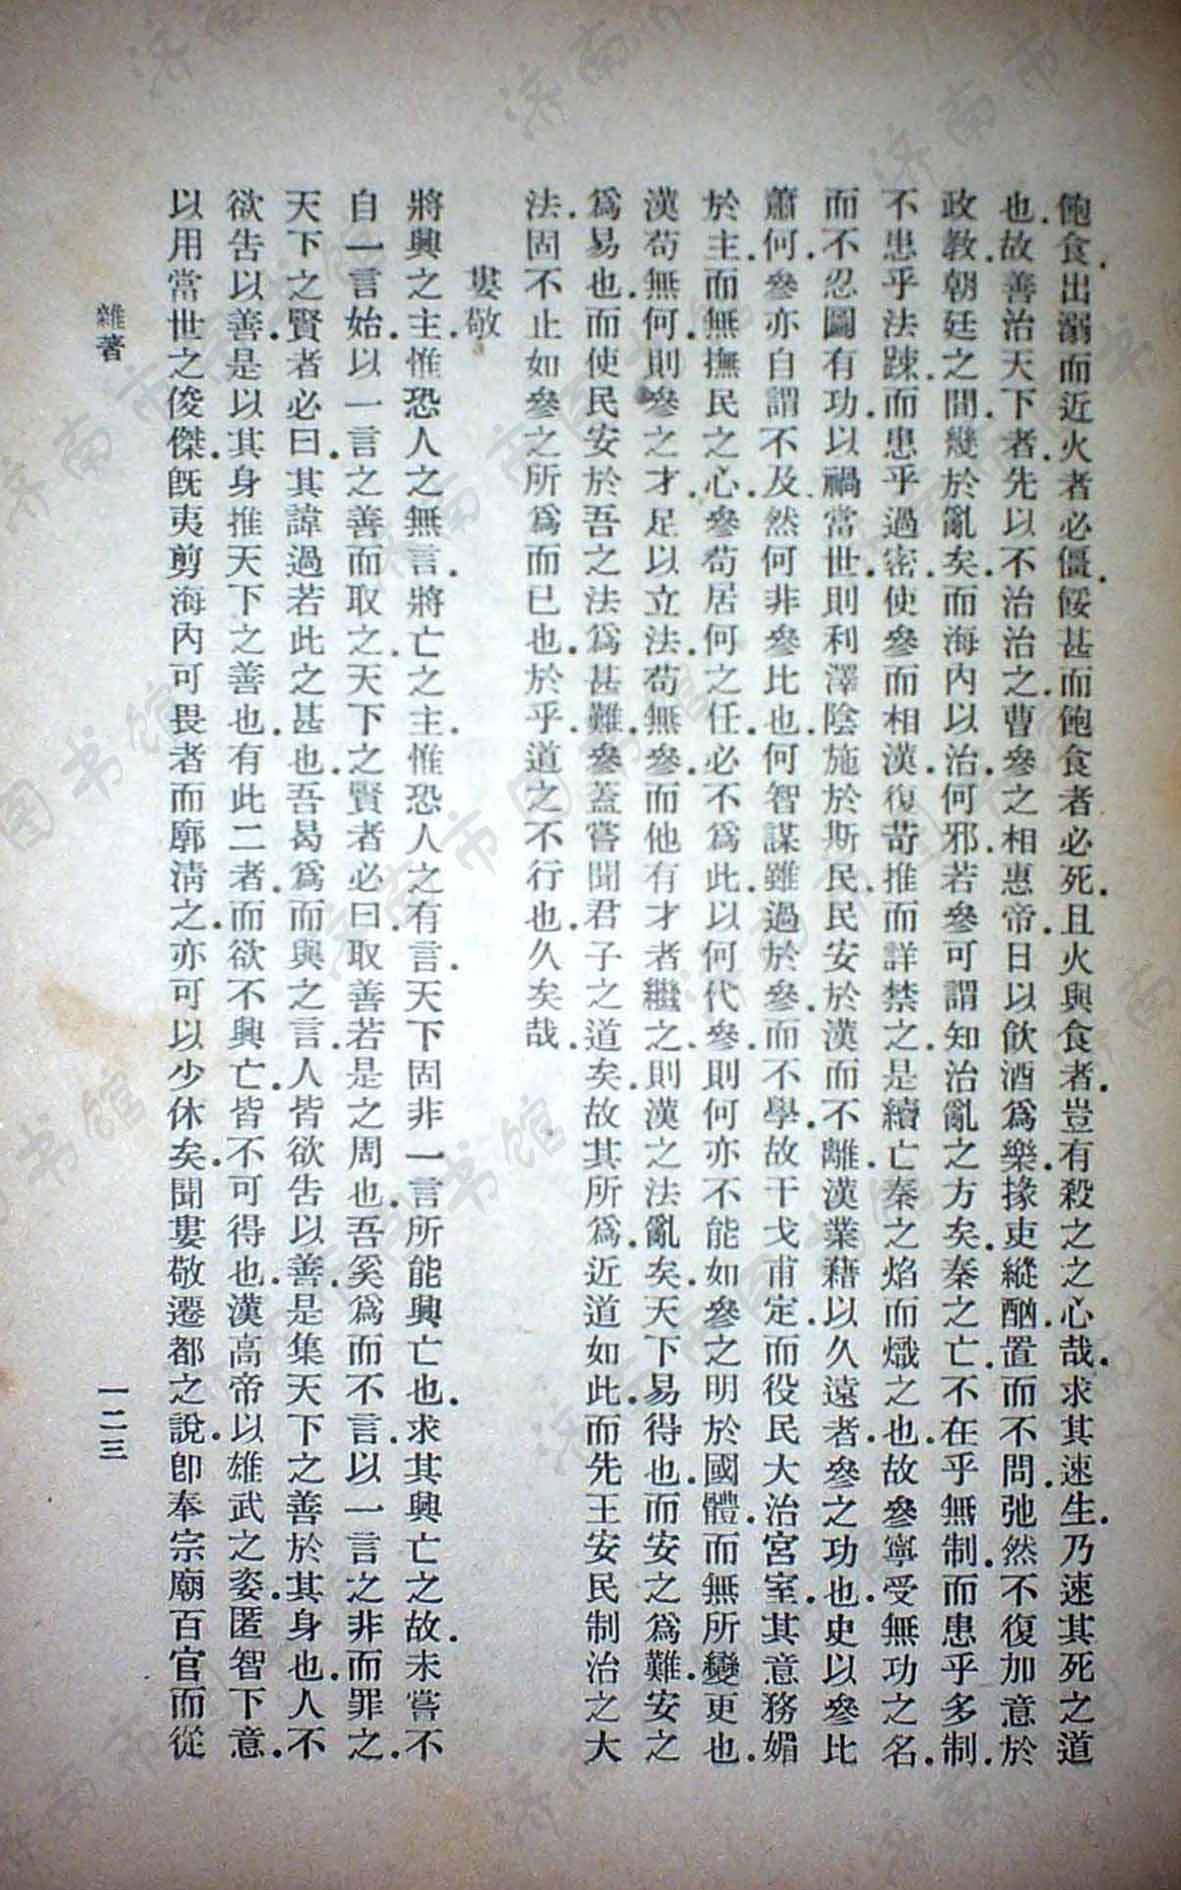 飽食.出溺而近火者必僵.餒甚而飽食者必死.且火與食者.豈有殺之之心哉.求其速生.乃速其死之道
也.故善治天下者.先以不治治之.曹參之相惠帝.日以飲酒爲樂.掾吏縱酗.置而不問.弛然不復加意於
政教.朝廷之間.幾於亂矣.而海內以治.何邪.若參可謂知治亂之方矣.秦之亡.不在乎無制.而患乎多制.
不患乎法踈.而患乎過密.使參而相漢.復苛推而詳禁之.是續亡秦之焰而熾之也.故參寧受無功之名.
而不忍圖有功.以禍當世.則利澤陰施於斯民.民安於漢而不離.漢業藉以久遠者.參之功也.史以參比
蕭何.參亦自謂不及.然何非參比也.何智謀雖過於參.而不學.故干戈甫定.而役民大治宮室.其意務媚
於主.而無撫民之心.參苟居何之任.必不爲此.以何代參.則何亦不能如參之明於國體.而無所變更也.
漢苟無何.則參之才.足以立法.苟無參.而他有才者繼之.則漢之法亂矣.天下易得也.而安之爲難.安之
爲易也.而使民安於吾之法爲甚難.參蓋嘗聞君子之道矣.故其所爲.近道如此.而先王安民制治之大
法.固不止如參之所爲而已也.於乎.道之不行也.久矣哉.
婁敬
將興之主.惟恐人之無言.將亡之主.惟恐人之有言.天下固非一言所能興亡也.求其興亡之故.未嘗不
自一言始.以一言之善而取之.天下之賢者必曰.取善若是之周也.吾奚爲而不言.以一言之非而罪之.
天下之賢者必曰.其諱過若此之甚也.吾曷爲而與之言.人皆欲告以善.是集天下之善於其身也.人不
欲告以善.是以其身推天下之善也.有此二者.而欲不興亡.皆不可得也.漢高帝以雄武之姿.匿智下意.
以用當世之俊傑.旣夷剪海內可畏者而廓淸之.亦可以少休矣.聞婁敬遷都之說.卽奉宗廟百官而從
雜著
一二三